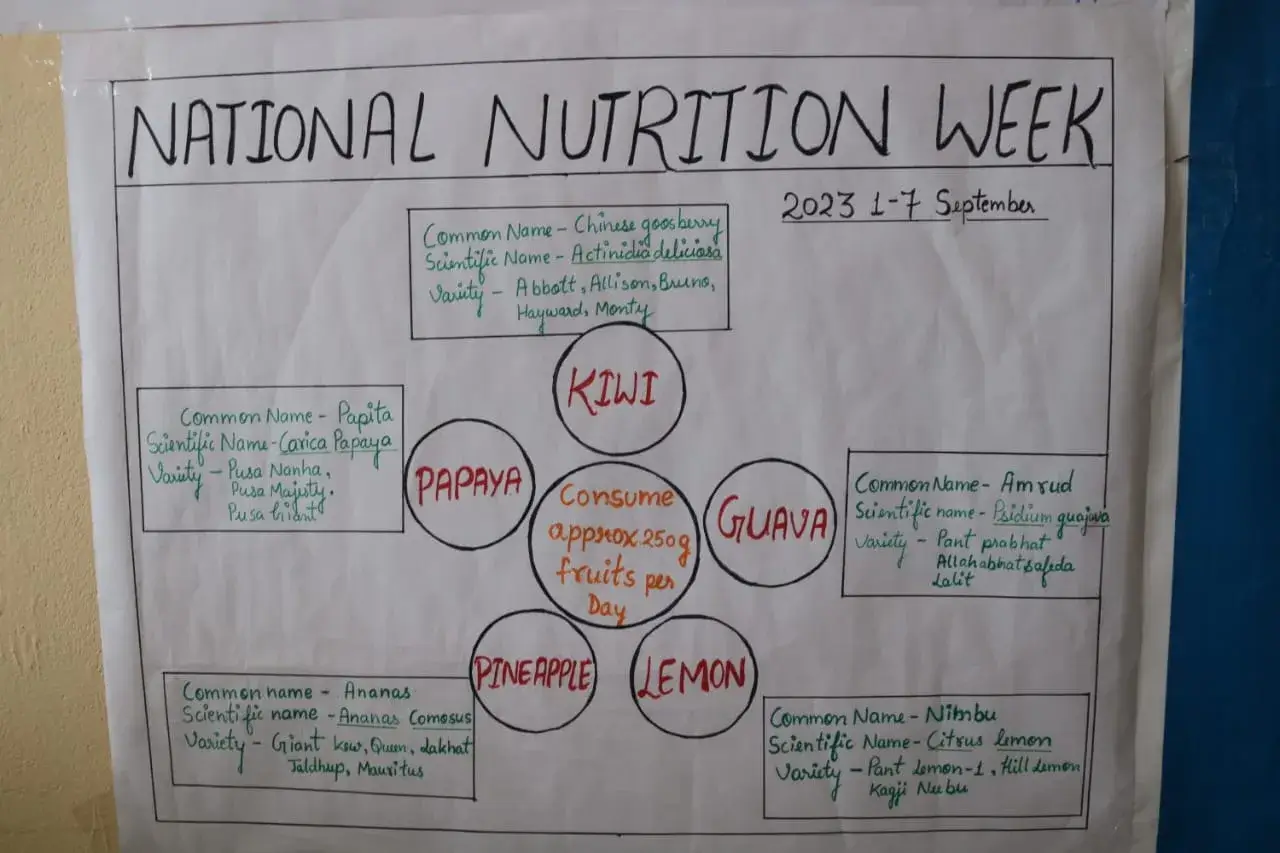 NATIONAL NUTRITION WEEK
2023 1-7 September
Common Name - Chinese goosberry
Scientific Name - Actinidia deliciosa
Variety - Abbott, Allison, Bruno,
Hayward, Monty
KIWI
Common Name - Papita
Scientific Name - Carica Papaya
Variety - Pusa Nanha,
Pusa Majisty.
Pusa Giant
PAPAYA
Consume
approx 250g
fruits per
Day
GUAVA
Common Name - Amrud
Scientific name - Psidium guajava
Variety - Pant prabhat
Allahabhat Safeda
Lalit
PINEAPPLE
Common name - Ananas
Scientific name - Ananas Comosus
Variety - Giant kew, Queen, Lakhat
Jaldhup, Mauritus
LEMON
Common Name - Nimbu
Scientific Name - Citrus lemon
Variety - Pant lemon-1, Hill lemon
Kagji Nubu